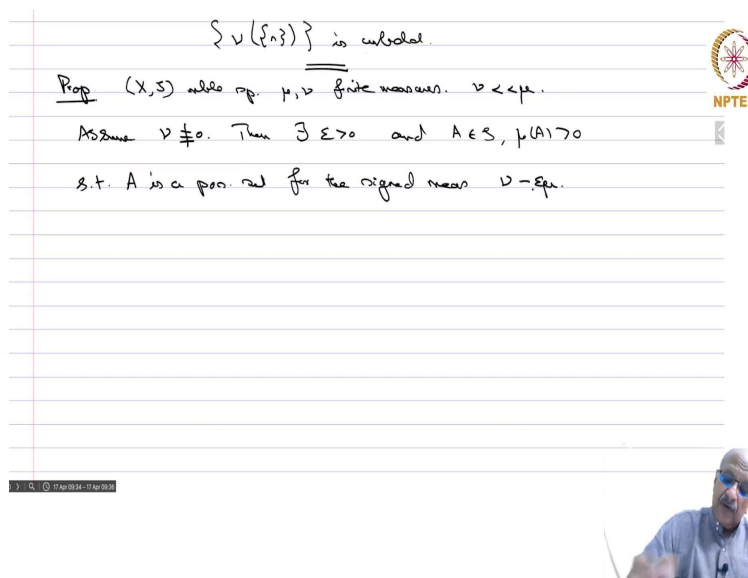 {ν({n})} is unbdd.
Prop (X,S) mble sp. μ,ν finite measures. ν<<μ.
Assume ν≢0. Then ∃ ε>0 and A∈S, μ(A)>0
s.t. A is a pos. set for the signed meas ν-εμ.
NPTE
17 Apr 09:34 – 17 Apr 09:36